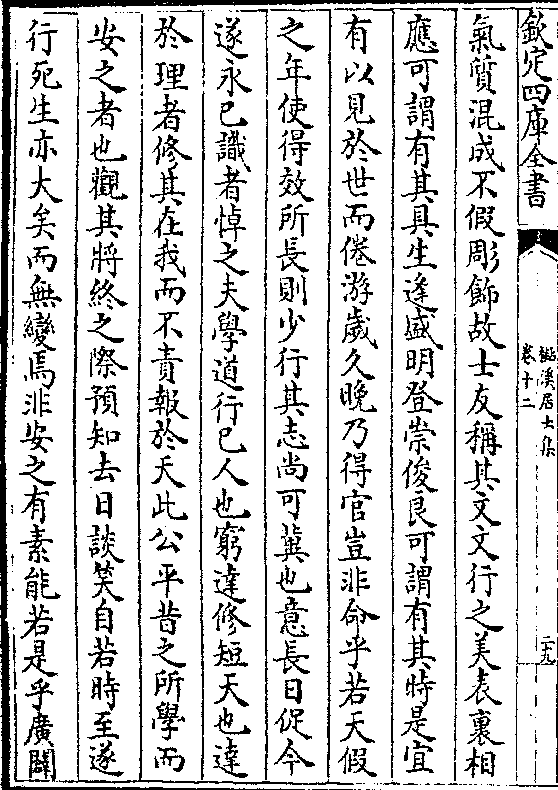 欽定四庫全書
濳溪居士集
卷十二
二十九
氣質混成不假彫飾故士友稱其文文行之美表裏相
應可謂有其具生逢盛明登崇俊良可謂有其時是宜
有以見於世而倦游歲久晚乃得官豈非命乎若天假
之年使得效所長則少行其志尚可冀也意長日促今
遂永已識者悼之夫學道行已人也窮達修短天也達
於理者修其在我而不責報於天此公平昔之所學而
安之者也觀其將終之際預知去日談笑自若時至遂
行死生亦大矣而無變焉非安之有素能若是乎廣闢